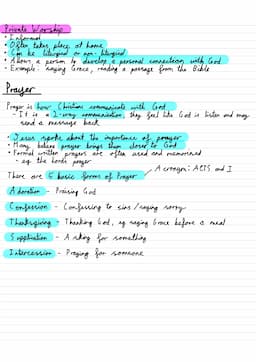 Private Worship
• Informal
• Often takes place at home
• Can be liturgical or non-liturgical
• Allows a person to develop a personal connection with God
• Example: saying Grace, reading a passage from the Bible
Prayer
Prayer is how Christians communicate with God
- It is a 2-way communication, they feel like God is listen and may
send a message back
• Jesus spoke about the importance of prayer
• Many believe prayer brings them closer to God
• Formal written prayers are often used and memorised
- eg. the lords prayer
There are 5 basic forms of Prayer / Acronym: ACTS and I
Adoration - Praising God
Confession - Confessing to sins/saying sorry
Thanksgiving - Thanking God, eg saying Grace before a meal
Supplication - Asking for something
Intercession - Praying for someone